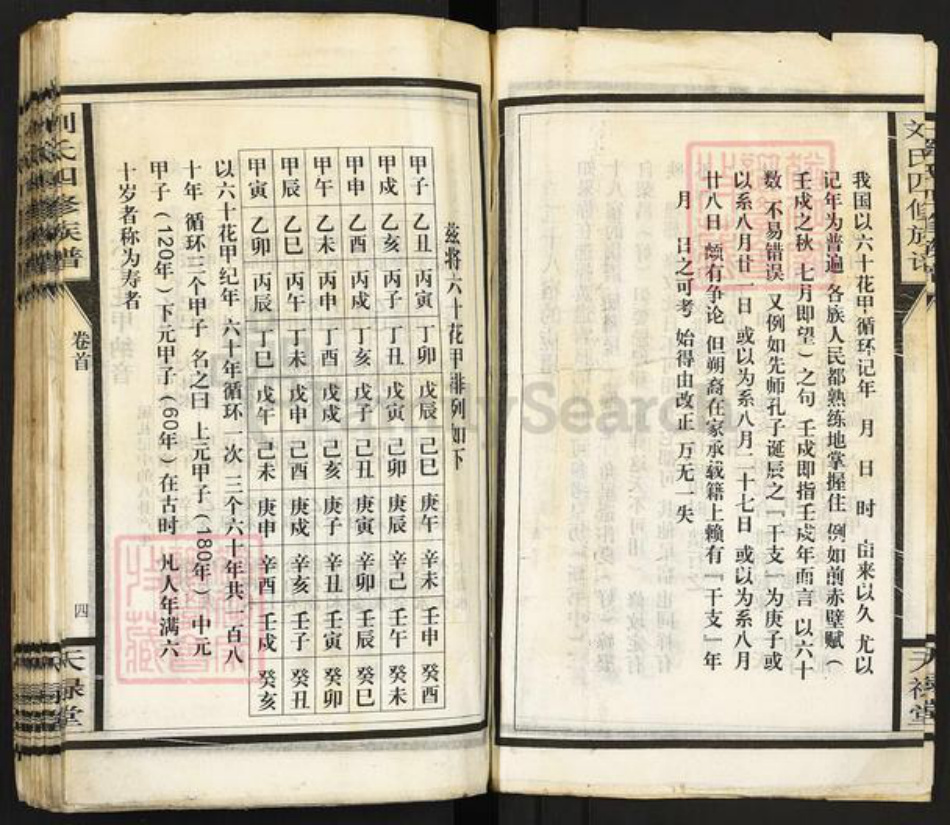 刘氏四修族谱
天禄堂
我国以六十花甲循环记年 月 日 时 由来以久 尤以
记年为普遍 各族人民都熟练地掌握住 例如前赤壁赋（
壬戍之秋 七月即望）之句 壬戍即指壬戍年而言 以六十
数 不易错误 又例如先师孔子诞辰之「干支」为庚子或
以系八月廿一日 或以为系八月二十七日 或以为系八月
廿八日 颇有争论 但朔裔在家承载籍上赖有「干支」年
月 日之可考 始得由改正 万无一失
兹将六十花甲排列如下
甲子 乙丑 丙寅 丁卯 戊辰 己巳 庚午 辛未 壬申 癸酉
甲戍 乙亥 丙子 丁丑 戊寅 己卯 庚辰 辛巳 壬午 癸未
甲申 乙酉 丙戍 丁亥 戊子 己丑 庚寅 辛卯 壬辰 癸巳
甲午 乙未 丙申 丁酉 戊戍 己亥 庚子 辛丑 壬寅 癸卯
甲辰 乙巳 丙午 丁未 戊申 己酉 庚戍 辛亥 壬子 癸丑
甲寅 乙卯 丙辰 丁巳 戊午 己未 庚申 辛酉 壬戍 癸亥
以六十花甲纪年 六十年循环一次 三个六十年共一百八
十年 循环三个甲子 名之曰 上元甲子（180年）中元
甲子（120年）下元甲子（60年）在古时 凡人年满六
十岁者称为寿者
刘氏四修族谱
卷首
四
天禄堂
FamilySearch